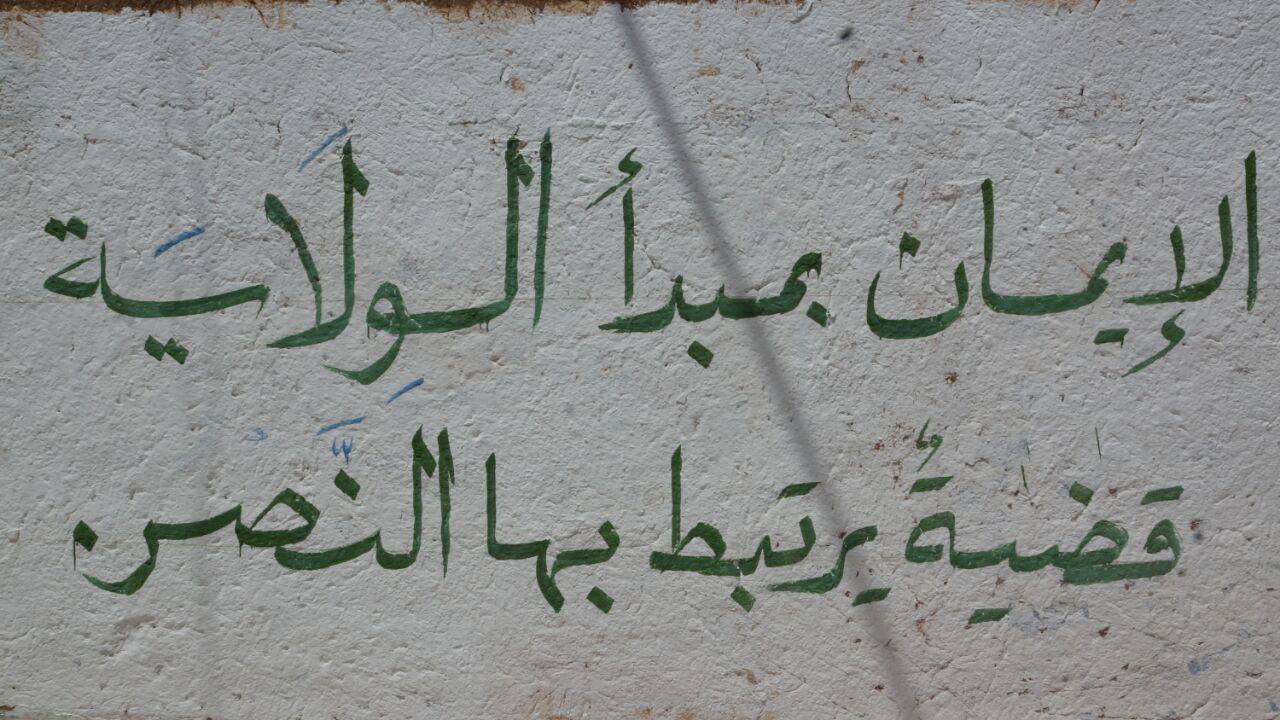 الإيمان بمبدأ الولَايَة
قضيةٌ يرتبط بها النَّصر.